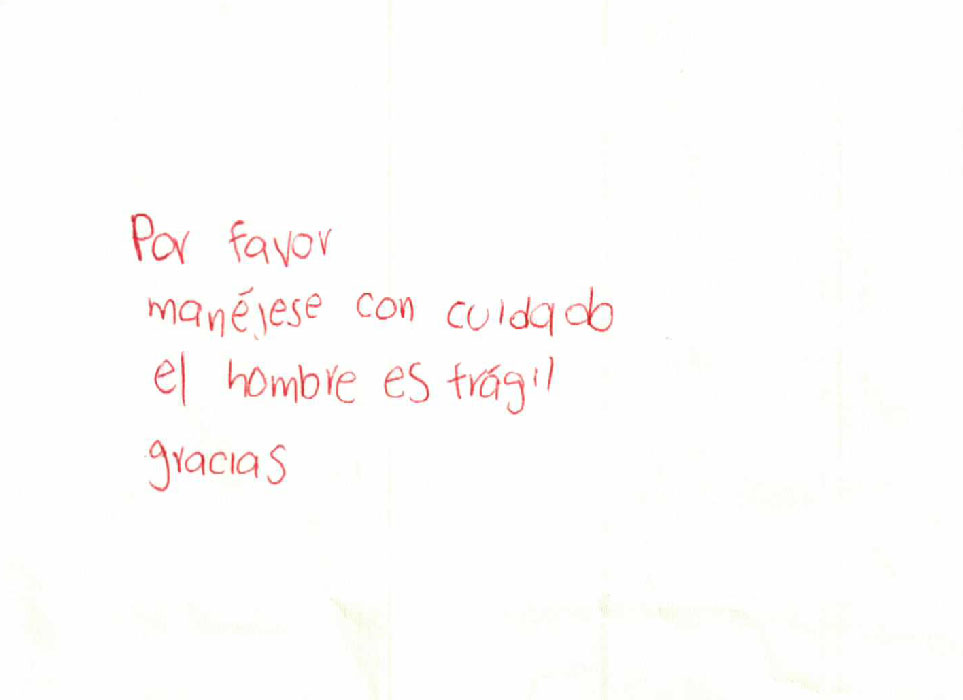 Por favor
manéjese con cuidado
el hombre es frágil
gracias